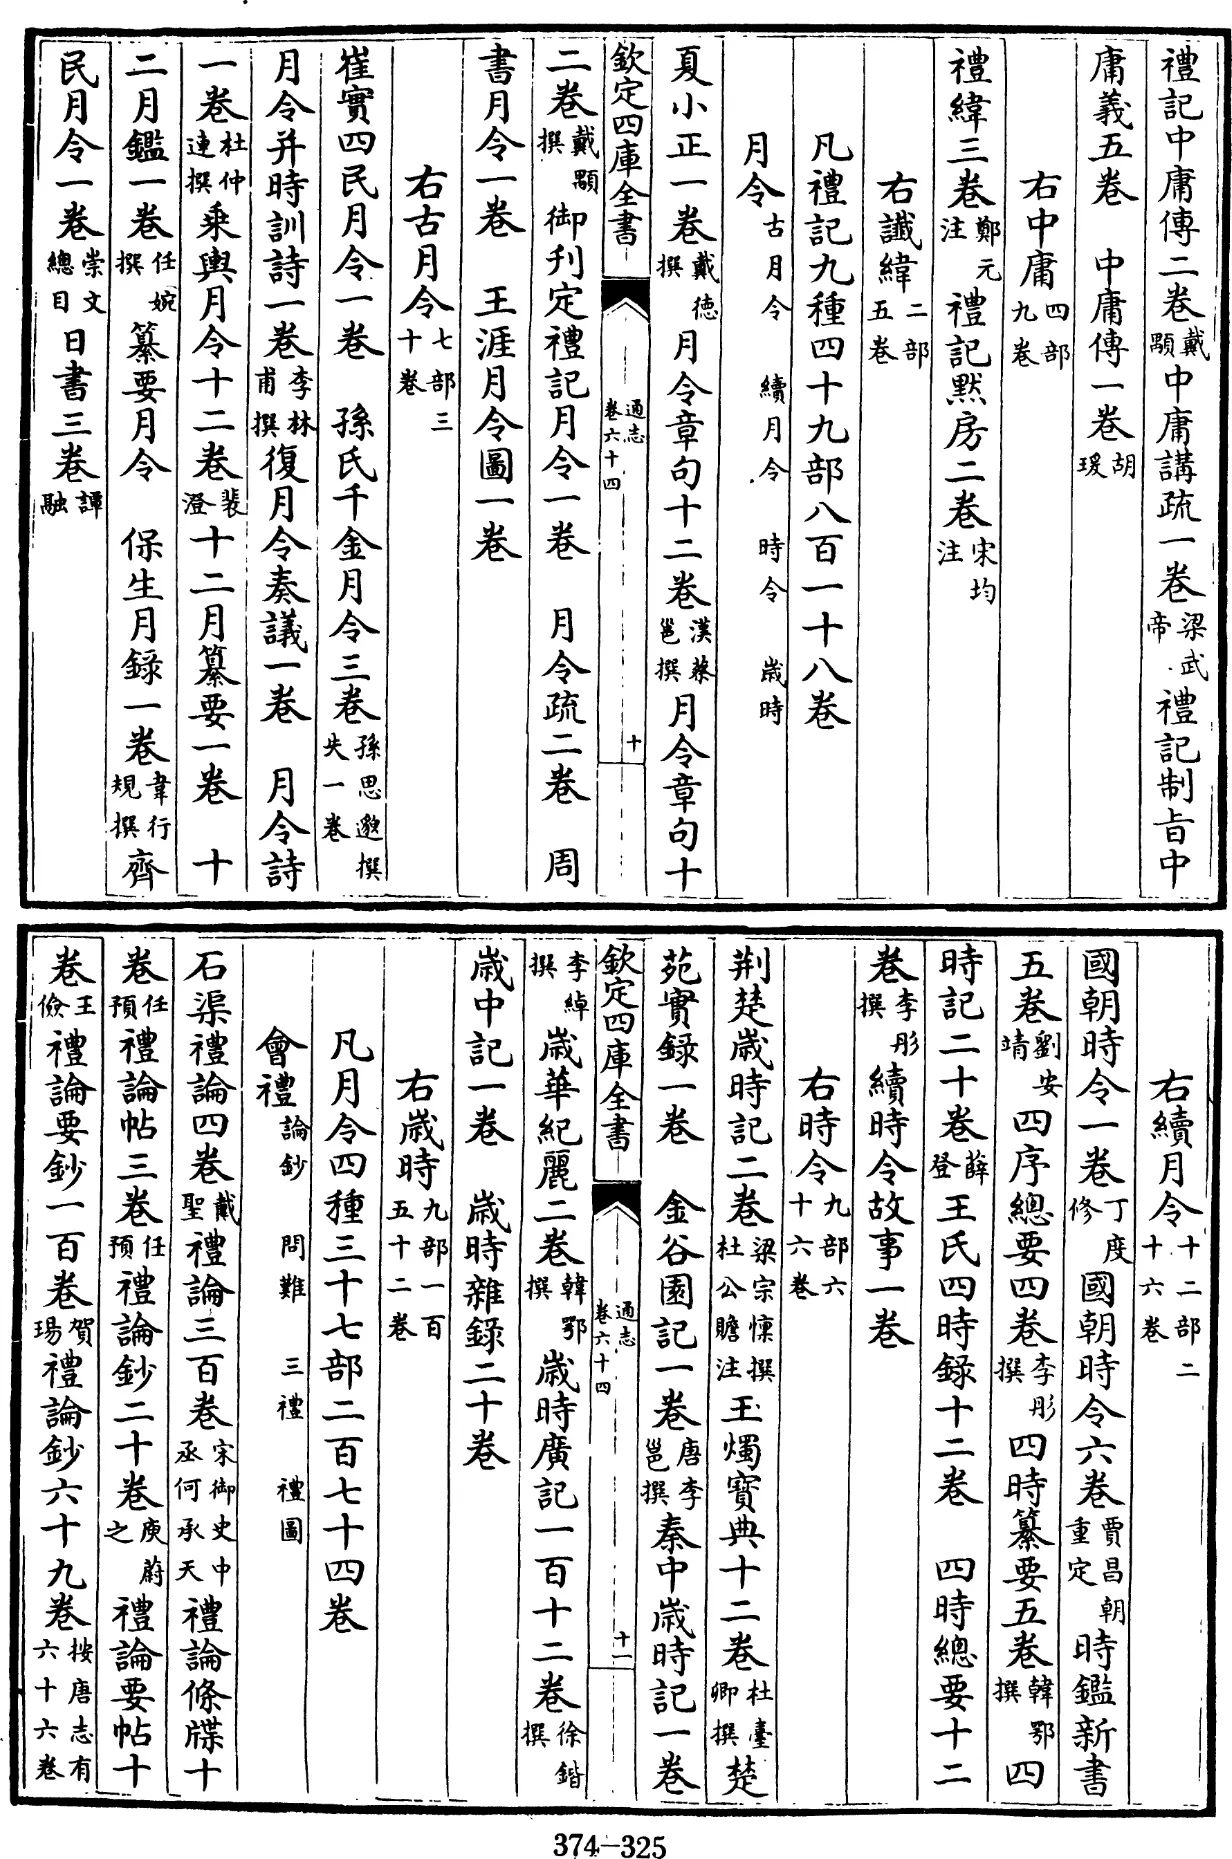 禮記中庸傳二卷戴顒中庸講疏一卷梁武帝禮記制旨中
庸義五卷　中庸傳一卷胡瑗
右中庸四部九卷
禮緯三卷鄭元注禮記默房二卷宋均注
右讖緯二部五卷
凡禮記九種四十九部八百一十八卷
月令古月令　續月令　時令　歲時
夏小正一卷戴德撰月令章句十二卷漢蔡邕撰月令章句十
欽定四庫全書　通志卷六十四　十
二卷戴顒撰御刋定禮記月令一卷　月令疏二卷　周
書月令一卷　王涯月令圖一卷
右古月令七部三十卷
崔實四民月令一卷　孫氏千金月令三卷孫思邈撰失一卷
月令并時訓詩一卷李林甫撰復月令奏議一卷　月令詩
一卷杜仲連撰乘輿月令十二卷裴澄十二月纂要一卷　十
二月鑑一卷任婉撰纂要月令　保生月錄一卷韋行規撰齊
民月令一卷崇文總目日書三卷譚融
右續月令十二部二十六卷
國朝時令一卷丁度修國朝時令六卷賈昌朝重定時鑑新書
五卷劉安靖四序總要四卷李彤撰四時纂要五卷韓鄂撰四
時記二十卷薛登王氏四時錄十二卷　四時總要十二
卷李彤撰續時令故事一卷
右時令九部六十六卷
荆楚歲時記二卷梁宗懍撰杜公瞻注玉燭寶典十二卷杜臺卿撰楚
苑實錄一卷　金谷園記一卷唐李邕撰秦中歲時記一卷
欽定四庫全書　通志卷六十四　十一
李綽撰歲華紀麗二卷韓鄂撰歲時廣記一百十二卷徐鍇撰
歲中記一卷　歲時雜錄二十卷
右歲時九部一百五十二卷
凡月令四種三十七部二百七十四卷
會禮論鈔　問難　三禮　禮圖
石渠禮論四卷戴聖禮論三百卷宋御史中丞何承天禮論條牒十
卷任預禮論帖三卷任預禮論鈔二十卷庾蔚之禮論要帖十
卷王儉禮論要鈔一百卷賀瑒禮論鈔六十九卷按唐志有六十六卷
374-325